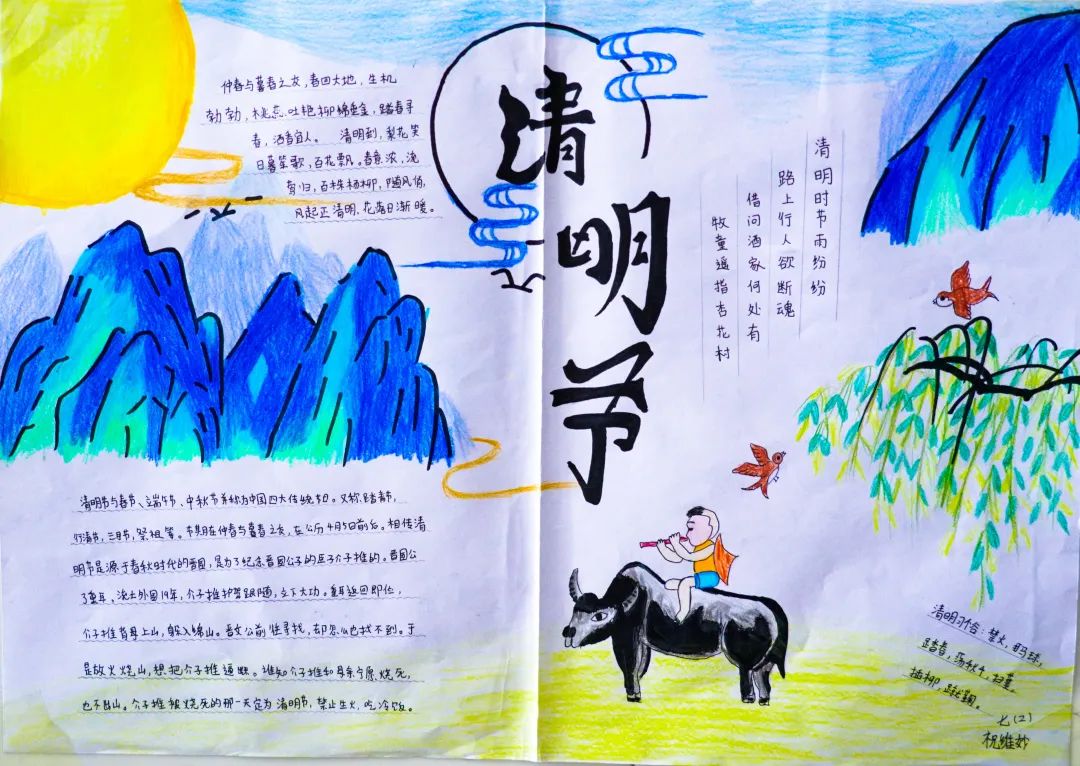 仲春与暮春之交，春回大地，生机
勃勃，桃蕊吐艳柳绵垂金，踏春寻
春，酒香宜人。清明到，梨花笑
日暮笙歌，百花飘。春意浓，浼
有归，百株杨柳，随风俏，
风起正清明，花落日渐暖。
清明节
清明时节雨纷纷
路上行人欲断魂
借问酒家何处有
牧童遥指杏花村
清明节与春节、端午节、中秋节并称为中国四大传统节日。又称踏青节，
行清节，三月节，祭祖等。节期在仲春与暮春之交，在公历4月5日前后。相传清
明节是源于春秋时代的晋国，是为了纪念晋国公子的臣子介子推的。晋国公
了重耳、流亡外国19年，介子推护驾跟随，立下大功。重耳返回即位，
介子推背母上山，躲入绵山。晋文公前往寻找，却怎么也找不到。于
是放火烧山，想把介子推逼出。谁知介子推和母亲宁愿烧死，
也不出山。介子推被烧死的那一天定为清明节，禁止生火，吃冷饭。
清明习俗：禁火，
踏春，荡秋千，扫墓。
插柳，蹴鞠。
七(2)
祝维妙